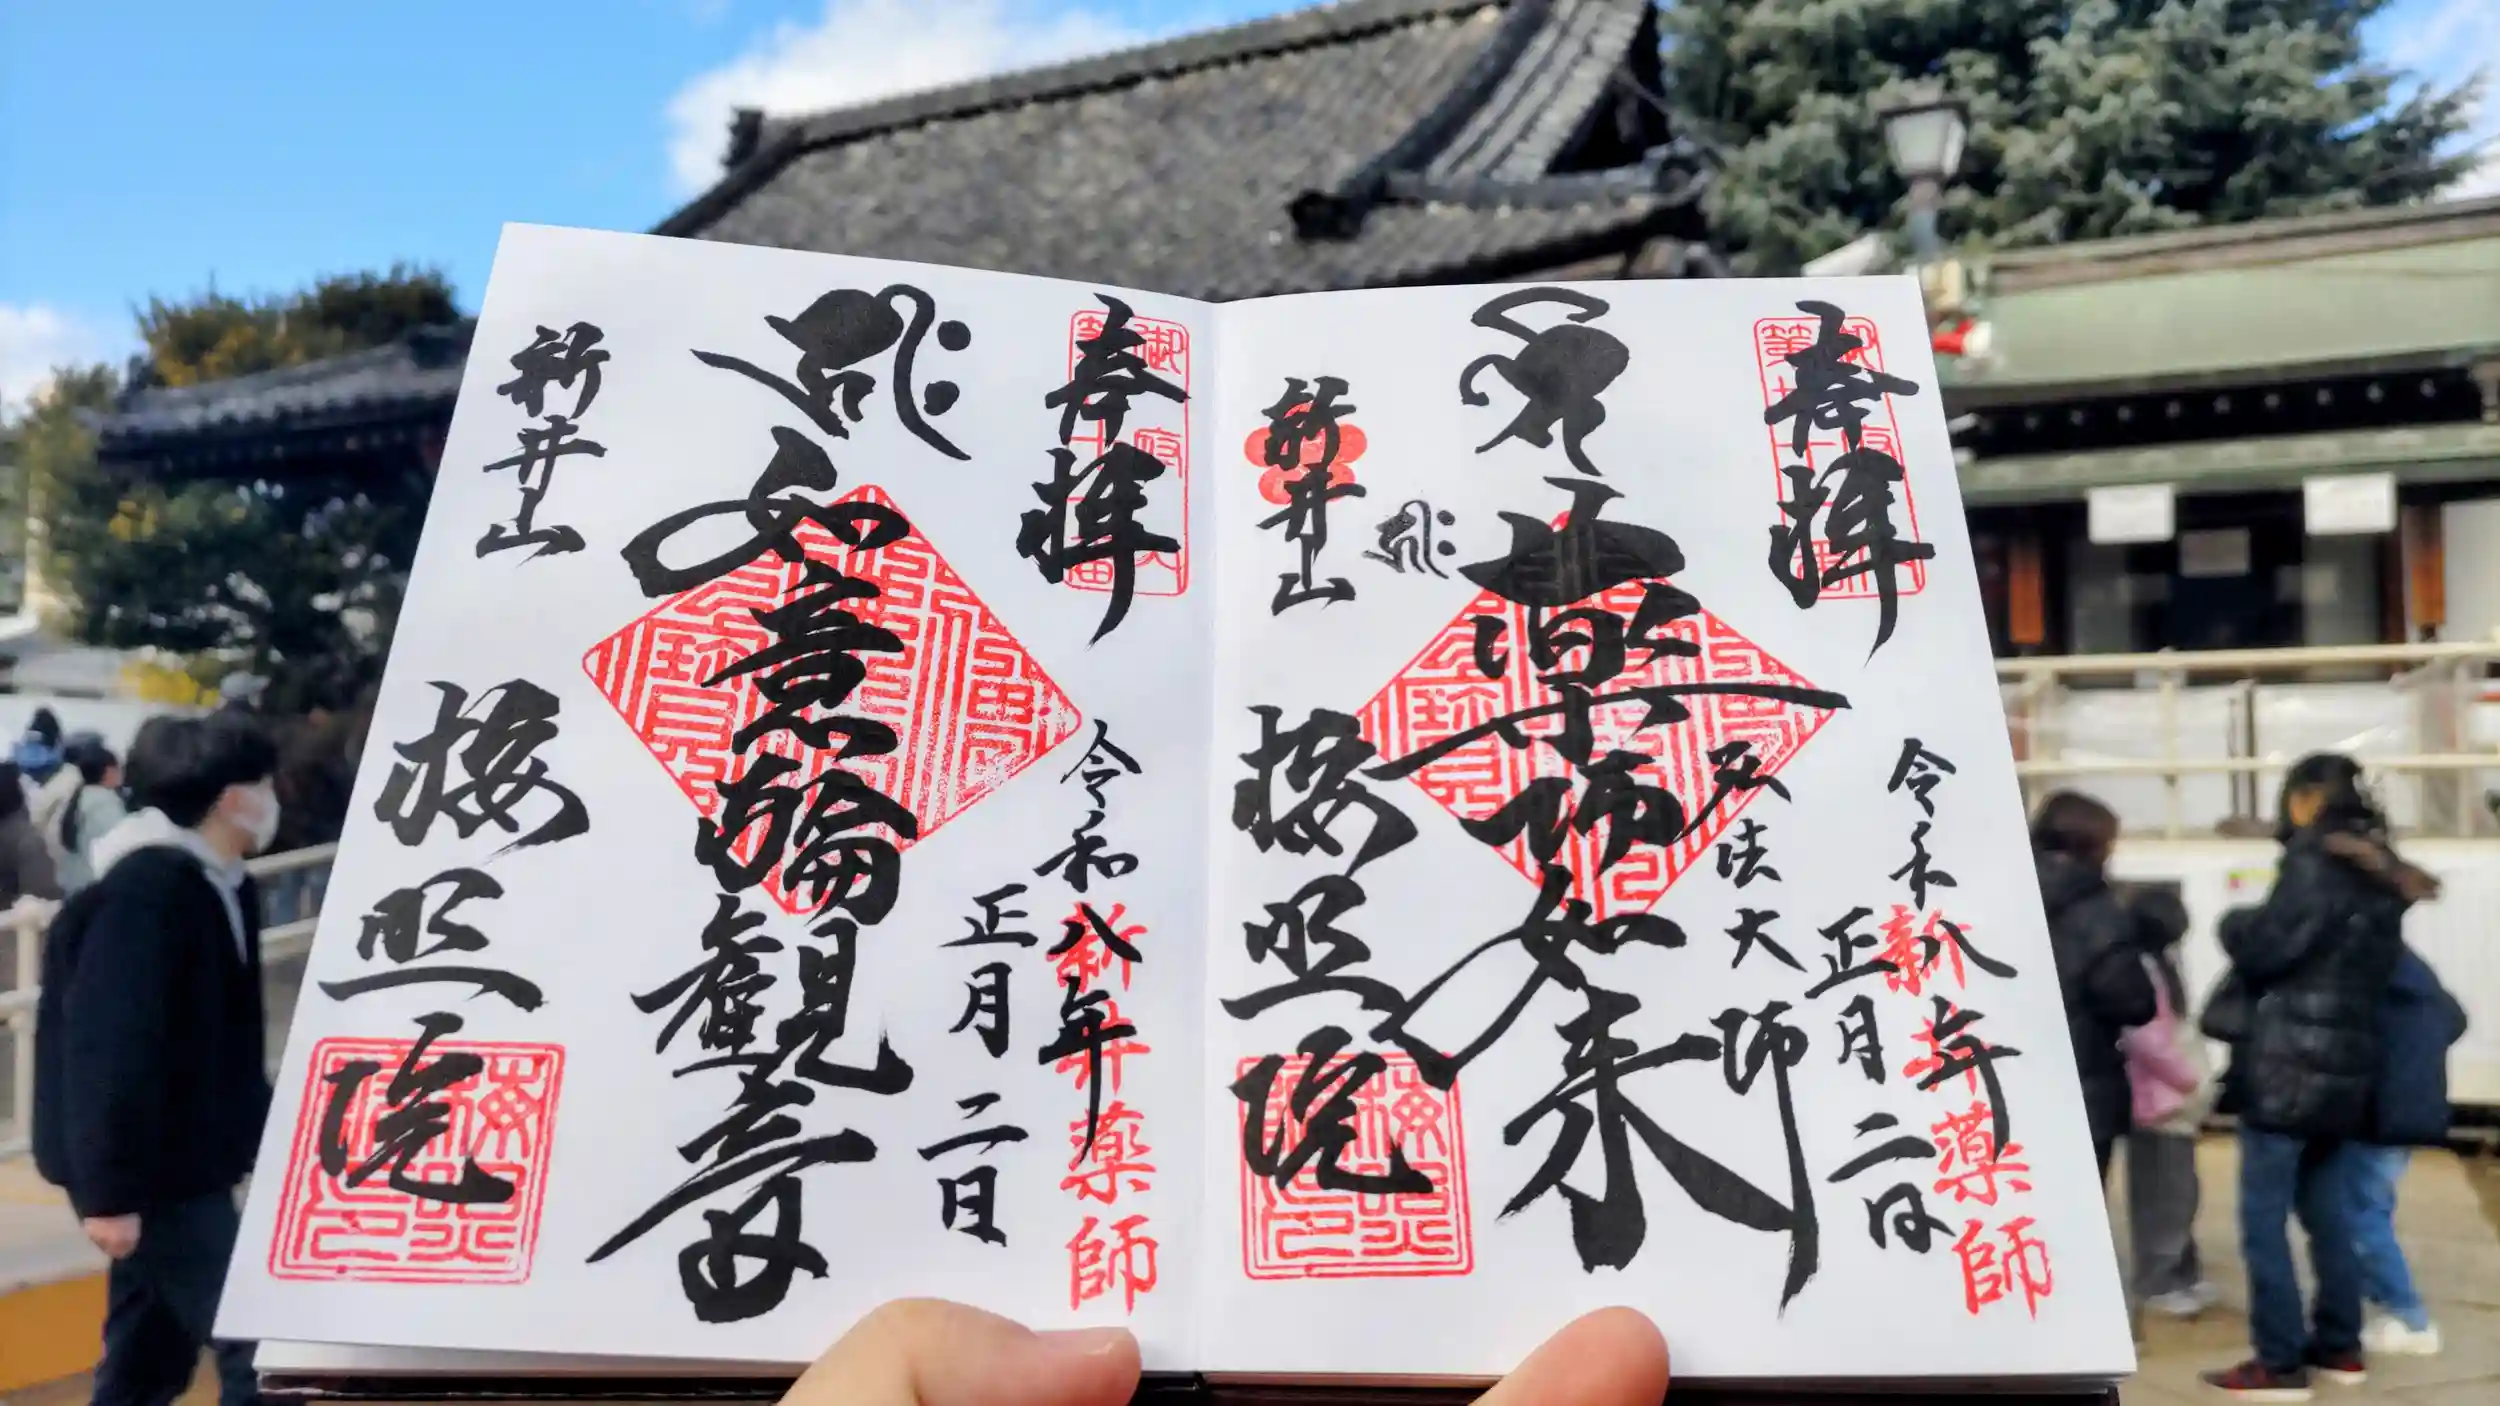 奉拝
令和八年
正月二日
薬師如来
弘法大師
新井山
梅照院
新井薬師
奉拝
令和八年
正月二日
如意輪観音
新井山
梅照院
新井薬師